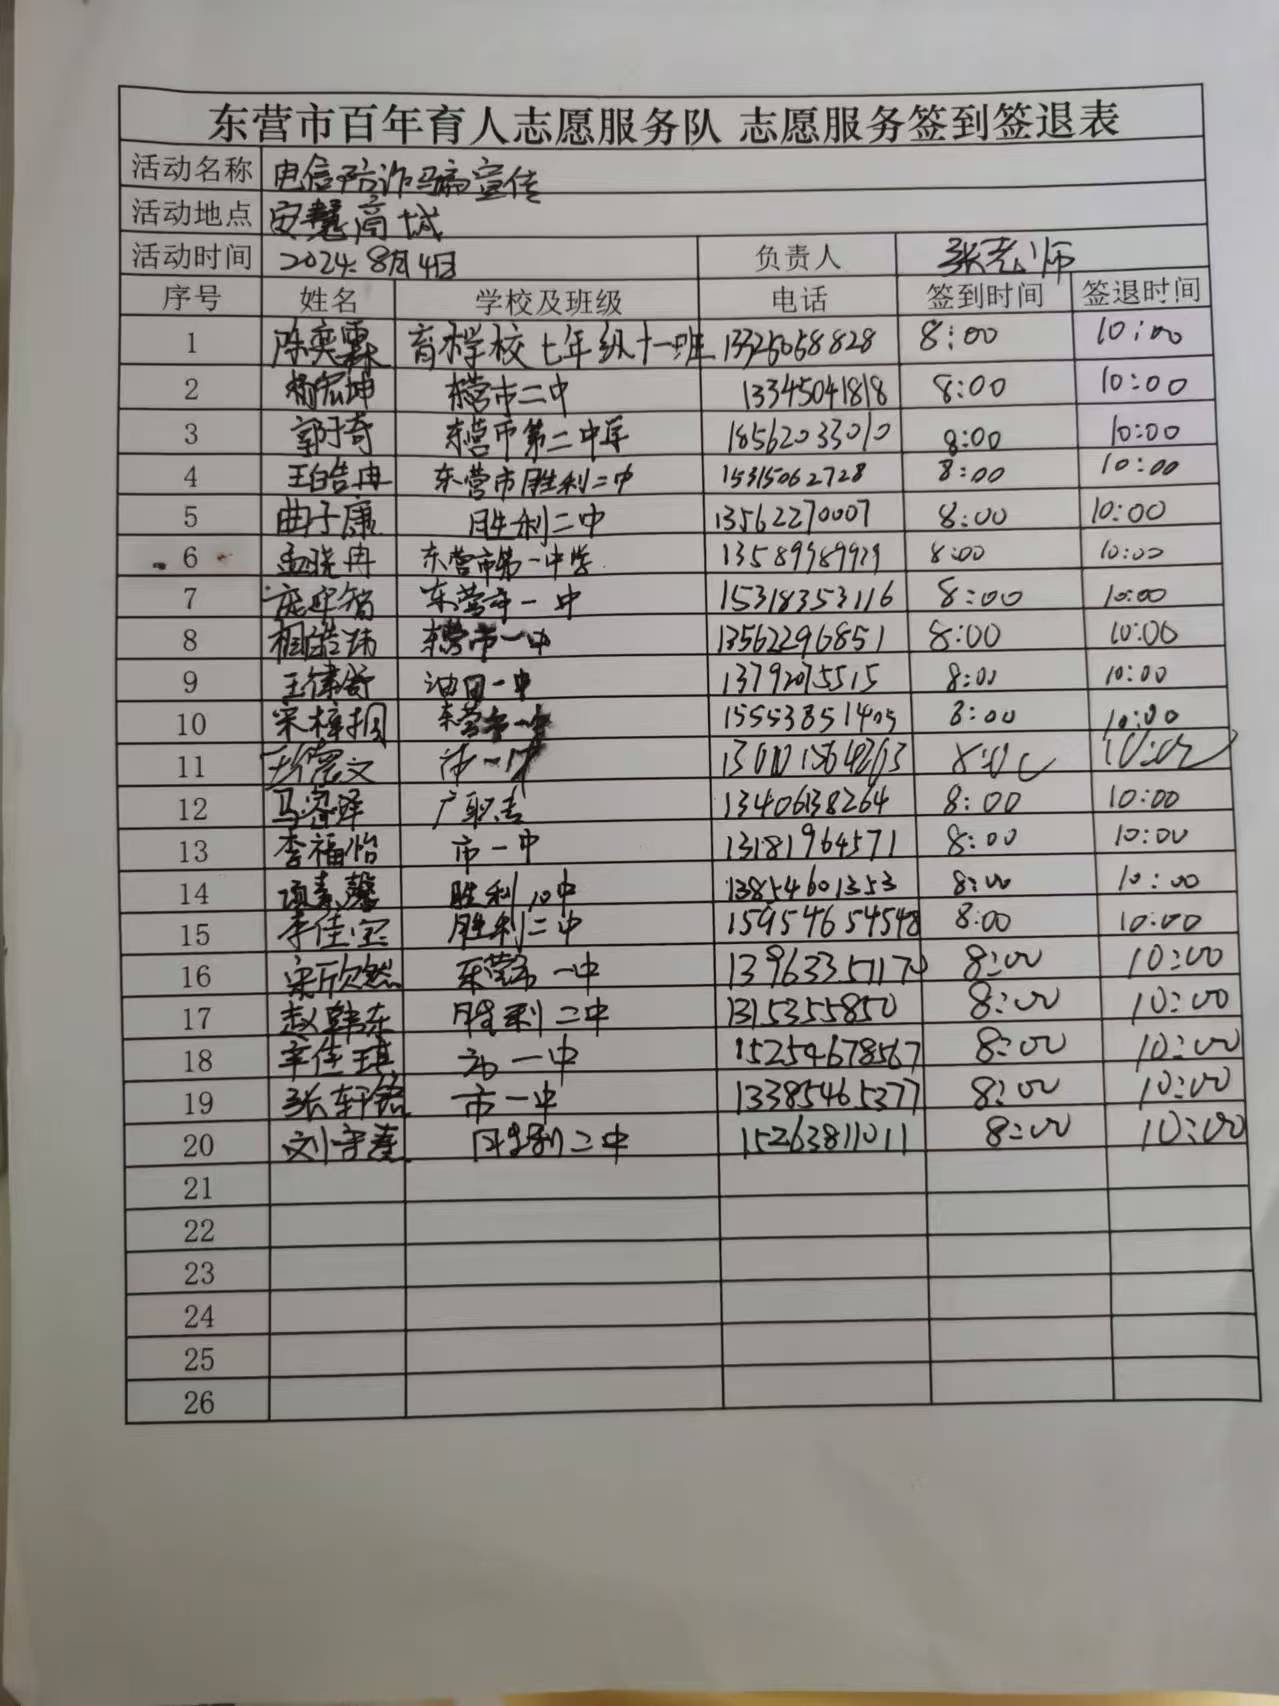 东营市百年育人志愿服务队 志愿服务签到签退表
活动名称 电信防诈骗宣传
活动地点 安慧商城
活动时间 2024.8月4日 负责人 张老师
序号 姓名 学校及班级 电话 签到时间 签退时间
1 陈奕霖 育才学校七年级十一班 13325058828 8:00 10:00
2 杨宏坤 东营市二中 13345041818 8:00 10:00
3 郭子奇 东营市第二中学 18562033010 8:00 10:00
4 王皓冉 东营市胜利二中 15315062728 8:00 10:00
5 曲子康 胜利二中 13562270007 8:00 10:00
6 孟晓冉 东营市第一中学 13589989979 8:00 10:00
7 东营市一中 15318353116 8:00 10:00
8 东营市一中 13562296851 8:00 10:00
9 王律舒 油田一中 13792075515 8:00 10:00
10 宋梓桐 东营市一中 15553851405 8:00 10:00
11 市一中 8:00 10:00
12 马睿泽 13406138264 8:00 10:00
13 李福怡 市一中 13181964571 8:00 10:00
14 胜利10中 13854601353 8:00 10:00
15 李佳宝 胜利二中 15954654548 8:00 10:00
16 宋欣然 东营市一中 8:00 10:00
17 赵韩东 胜利二中 1315355850 8:00 10:00
18 辛佳琪 市一中 15254678567 8:00 10:00
19 张轩铭 市一中 13385465377 8:00 10:00
20 胜利二中 15263811011 8:00 10:00
21
22
23
24
25
26